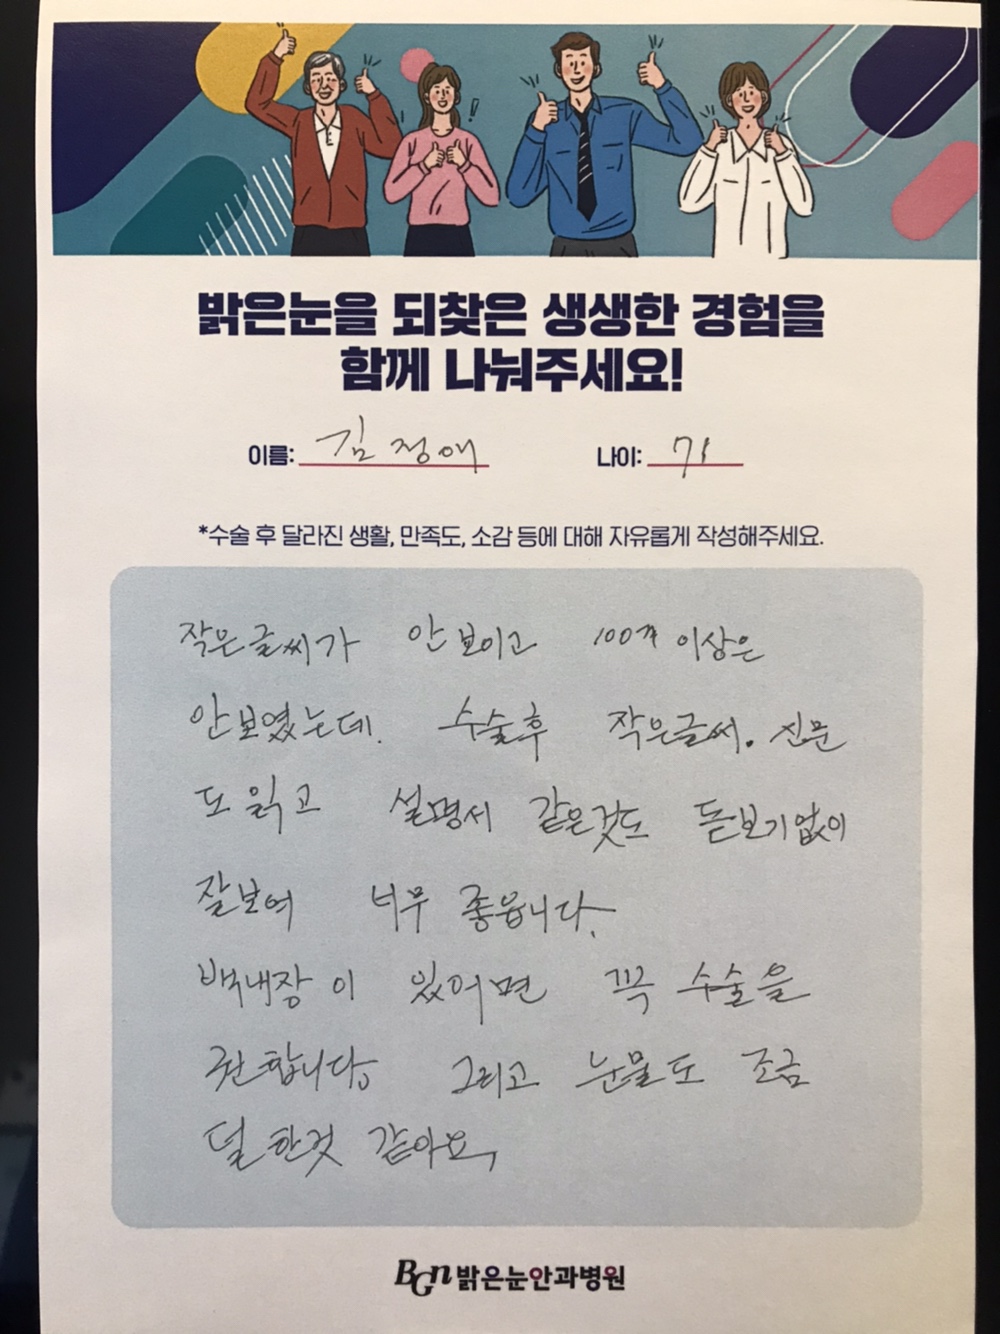 밝은눈을 되찾은 생생한 경험을
함께 나눠주세요!
이름: 김정애 나이: 71
*수술 후 달라진 생활, 만족도, 소감 등에 대해 자유롭게 작성해주세요.
작은글씨가 안보이고 100m 이상은
안보였는데. 수술후 작은글씨. 신문
도 읽고 설명서 같은것도 돋보기없이
잘보여 너무 좋읍니다.
백내장이 있어면 꼭 수술을
권합니다. 그리고 눈물도 조금
덜 한것 같아요,
BGn 밝은눈안과병원